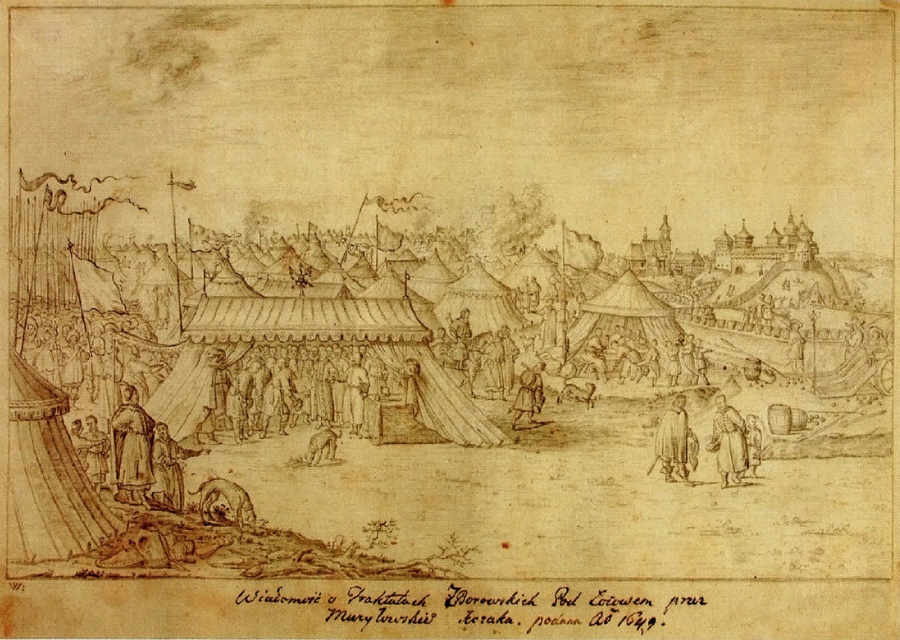 Wiadomość o Traktatach Zborowskich Pod Łoiowem przez
Murzyłowskie Kozaka. podana Aō 1649.